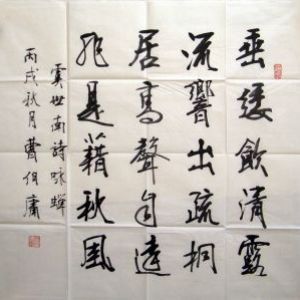 垂緌飲清露
流響出疏桐
居高聲自遠
非是藉秋風
虞世南詩咏蟬
丙戌秋月曹伯庸